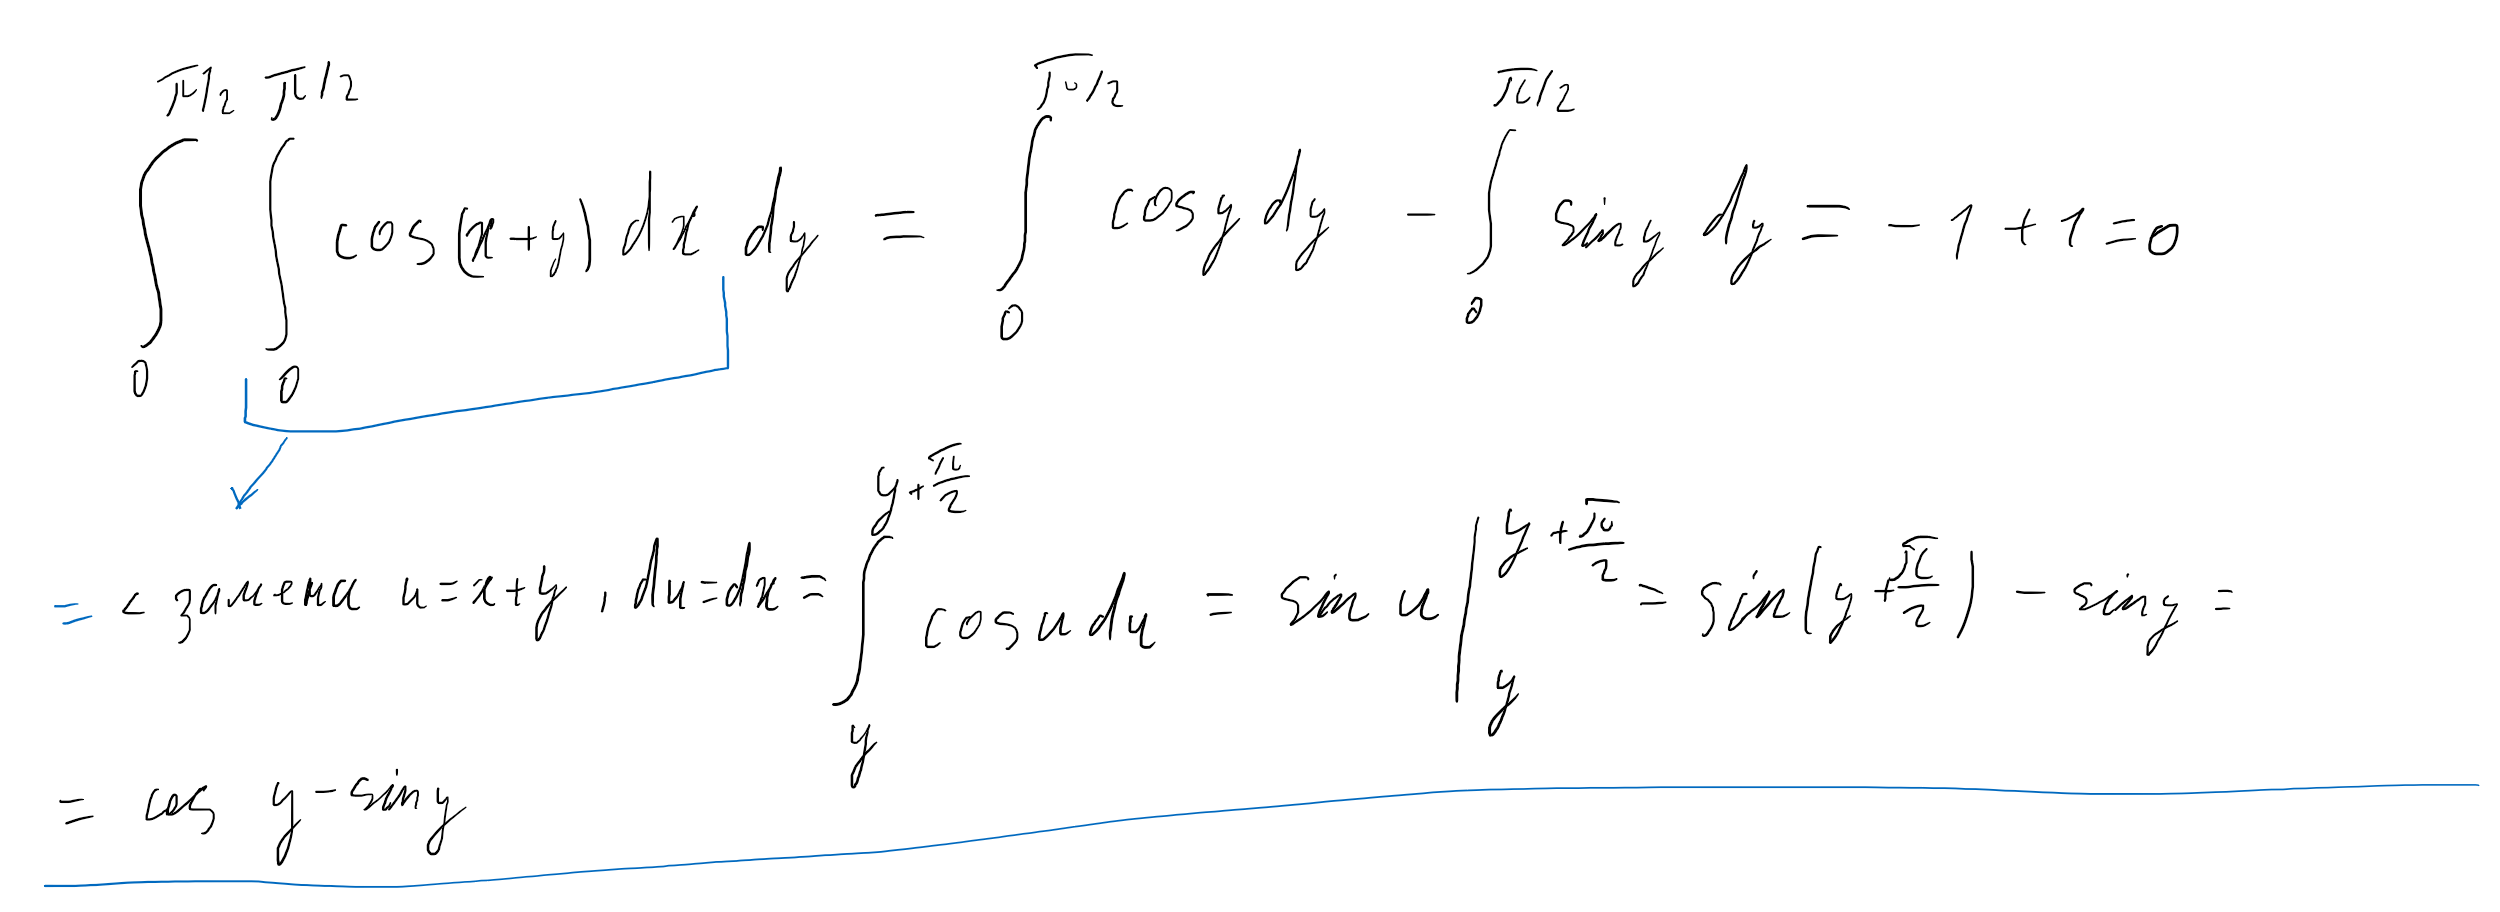 ∫₀^{π/2} ∫₀^{π/2} cos(x+y) dx dy = ∫₀^{π/2} cos y dy - ∫₀^{π/2} sin y dy = -1+1=0
= <замена u=x+y, du=dx = ∫_y^{y+π/2} cos u du = sin u |_y^{y+π/2} = sin(y+π/2) - sin y =
= cos y - sin y